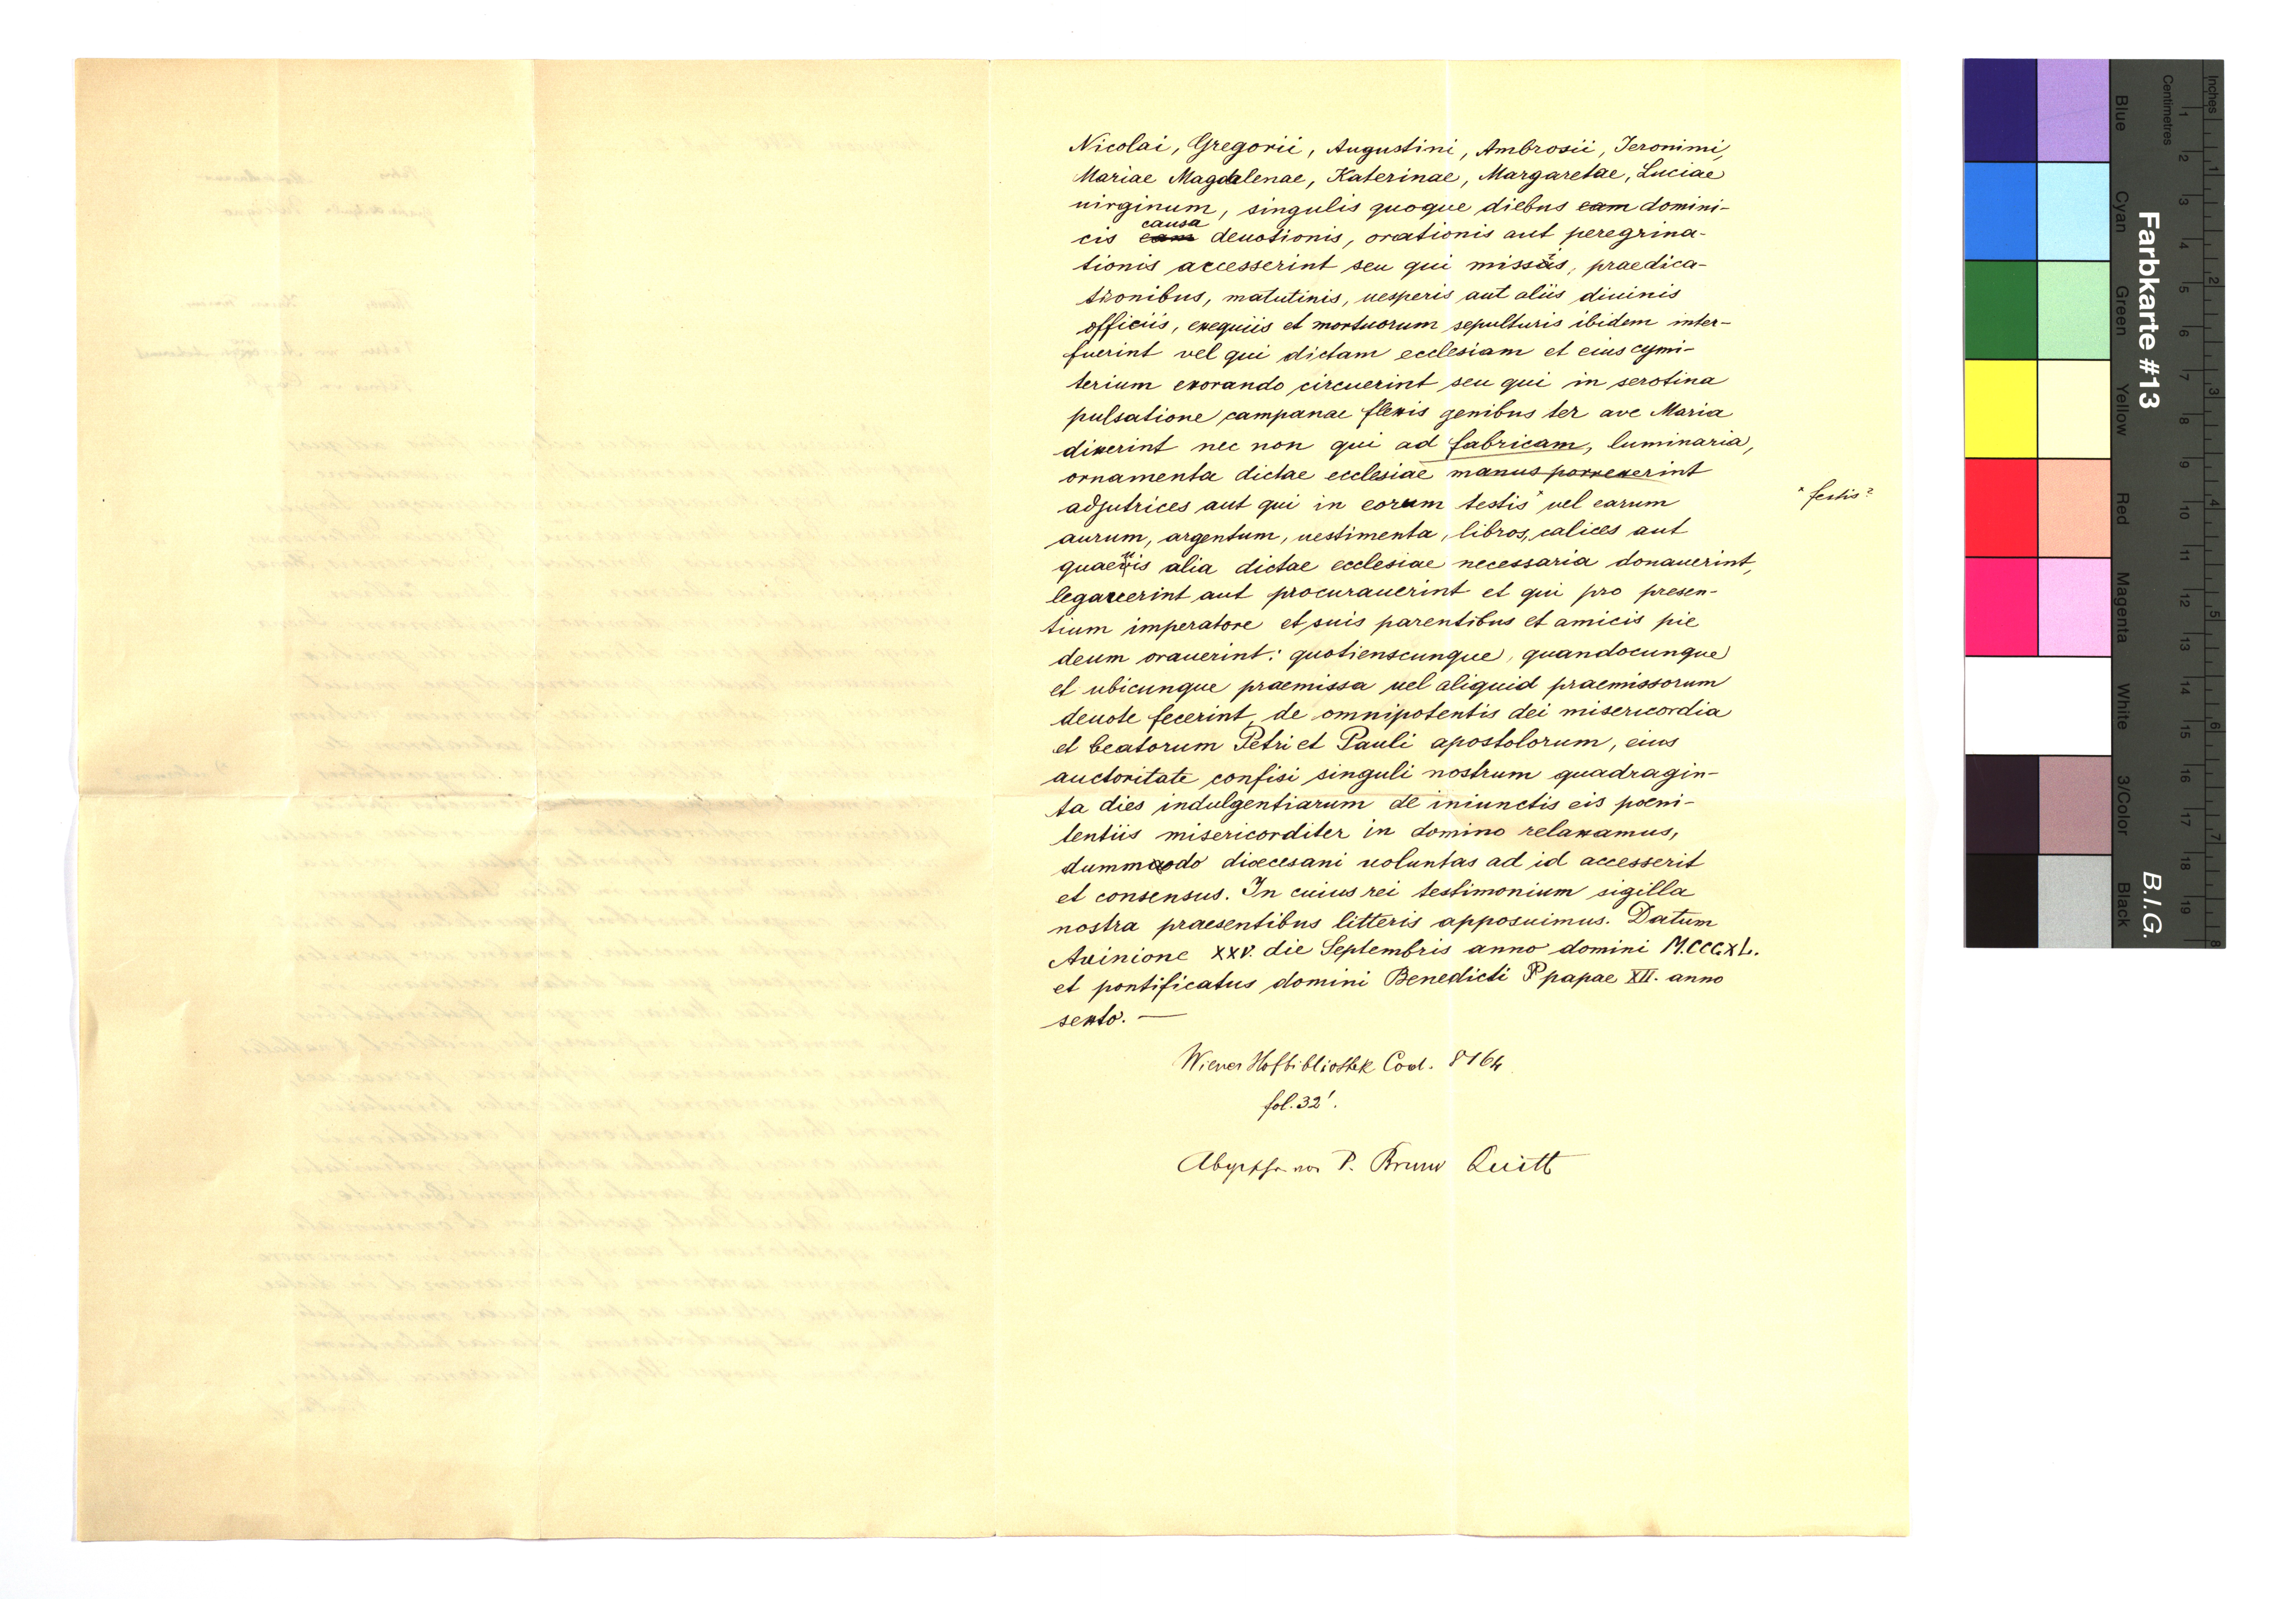 Nicolai, Gregorii, Augustini, Ambrosii, Ieronimi,
Mariae Magdalenae, Katerinae, Margaretae, Luciae
uirginum, singulis quoque diebus eam domini-
causa
cis eam deuotionis, orationis aut peregrina-
tionis accesserint seu qui missis, praedica-
tionibus, matutinis, uesperis aut aliis diuinis
officiis, exequiis et mortuorum sepulturis ibidem inter-
fuerint vel qui dictam ecclesiam et eius cymi-
terium exorando circuerint seu qui in serotina
pulsatione campanae flexis genibus ter ave Maria
dixerint nec non qui ad fabricam, luminaria,
ornamenta dictae ecclesiae manus porrexerint
adjutrices aut qui in eorum testis* uel earum
* festis?
aurum, argentum, uestimenta, libros, calices aut
quaeuis alia dictae ecclesiae necessaria donauerint,
legauerint aut procurauerint et qui pro presen-
tium imperatore et suis parentibus et amicis pie
deum orauerint: quotienscunque, quandocunque
et ubicunque praemissa uel aliquid praemissorum
deuote fecerint, de omnipotentis dei misericordia
et beatorum Petri et Pauli apostolorum, eius
auctoritate confisi singuli nostrum quadragin-
ta dies indulgentiarum de iniunctis eis poeni-
tentiis misericorditer in domino relaxamus,
dummodo dioecesani uoluntas ad id accesserit
et consensus. In cuius rei testimonium sigilla
nostra praesentibus litteris apposuimus. Datum
Auinione XXV. die Septembris anno domini M.CCCXL.
et pontificatus domini Benedicti P papae XII. anno
sexto. —
Wiener Hofbibliothek Cod. 8164
fol. 32'.
P. Bruno Quitt
Farbkarte #13
B.I.G.
Blue
Cyan
Green
Yellow
Red
Magenta
White
3/Color
Black
Centimetres
1 2 3 4 5 6 7 8 9 10 11 12 13 14 15 16 17 18 19
Inches
1 2 3 4 5 6 7 8